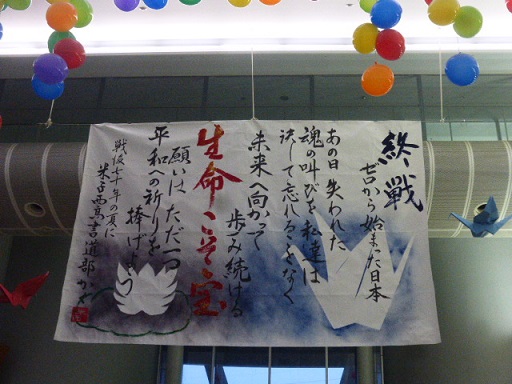 終戦
ゼロから始まった日本
あの日失われた
魂の叫びを私達は
決して忘れることなく
未来へ向かって
歩み続ける
生命こそ宝
願いは、ただ一つ
平和への祈りを
捧げよう
戦後七十年夏に
米子西高書道部